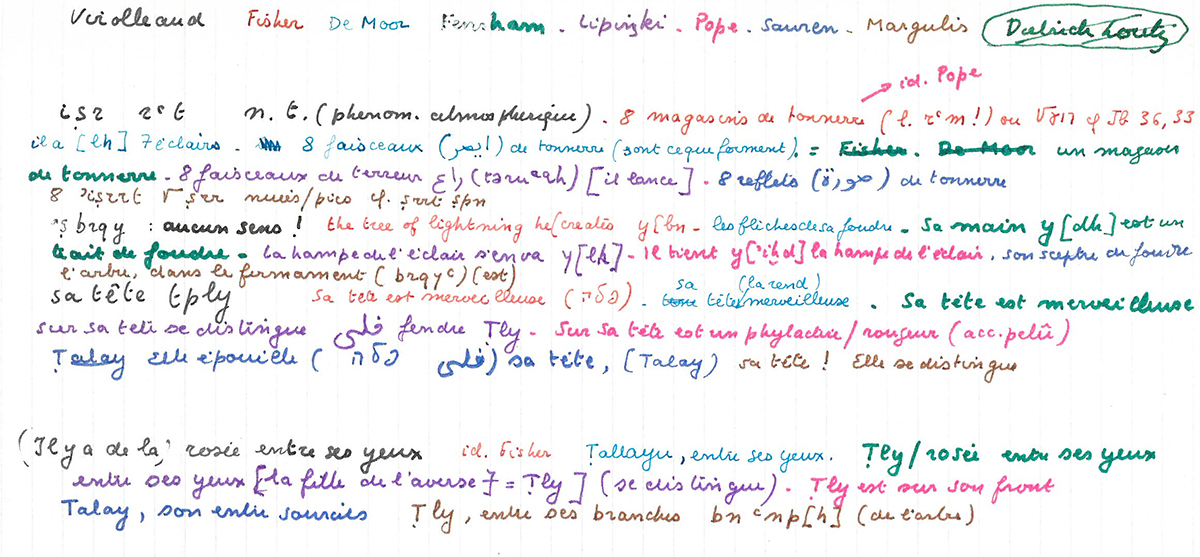 Virolleaud Fisher De Moor Fensham . Lipinzki . Pope . Sauren . Margulis Dietrich Loretz
id. Pope
iṣr rʿt n. t. (phénom. atmosphérique) . 8 magasins de tonnerre (l. rʿm !) ou cf Jb 36, 33
il a [lh] 7 éclairs . 8 faisceaux de tonnerre (sont ce que forment). = Fisher . De Moor un magasin
de tonnerre . 8 faisceaux de terreur [il lance] . 8 reflets (صورة) de tonnerre
8 nuées/pics cf. ṣrrt ṣpn
ʿṣ brqy : aucun sens ! the tree of lightning he [creates y[bn - les flèches de sa foudre . Sa main y[dh] est un
trait de foudre - la hampe de l'éclair s'en va y[lh] - Il tient y[ʾiḫd] la hampe de l'éclair , son sceptre de foudre
l'arbre, dans le firmament (brqyʿ) (est)
sa tête tply sa tête est merveilleuse (פלה) . sa tête (la rend) merveilleuse . Sa tête est merveilleuse
sur sa tête se distingue فلى fendre Ṭly . Sur sa tête est un phylactère/rougeur (acc. pelû)
Ṭalay Elle épouille (פלה فلى) sa tête, (Talay) sa tête ! Elle se distingue
(Il y a de la) rosée entre ses yeux id. Fisher Ṭallayu, entre ses yeux. Ṭly/rosée entre ses yeux
entre ses yeux [la fille de l'averse] = Ṭly] (se distingue) . Ṭly est sur son front
Talay, son entre sourcils Ṭly, entre ses branches bn ʿnp[h] (de l'arbre)